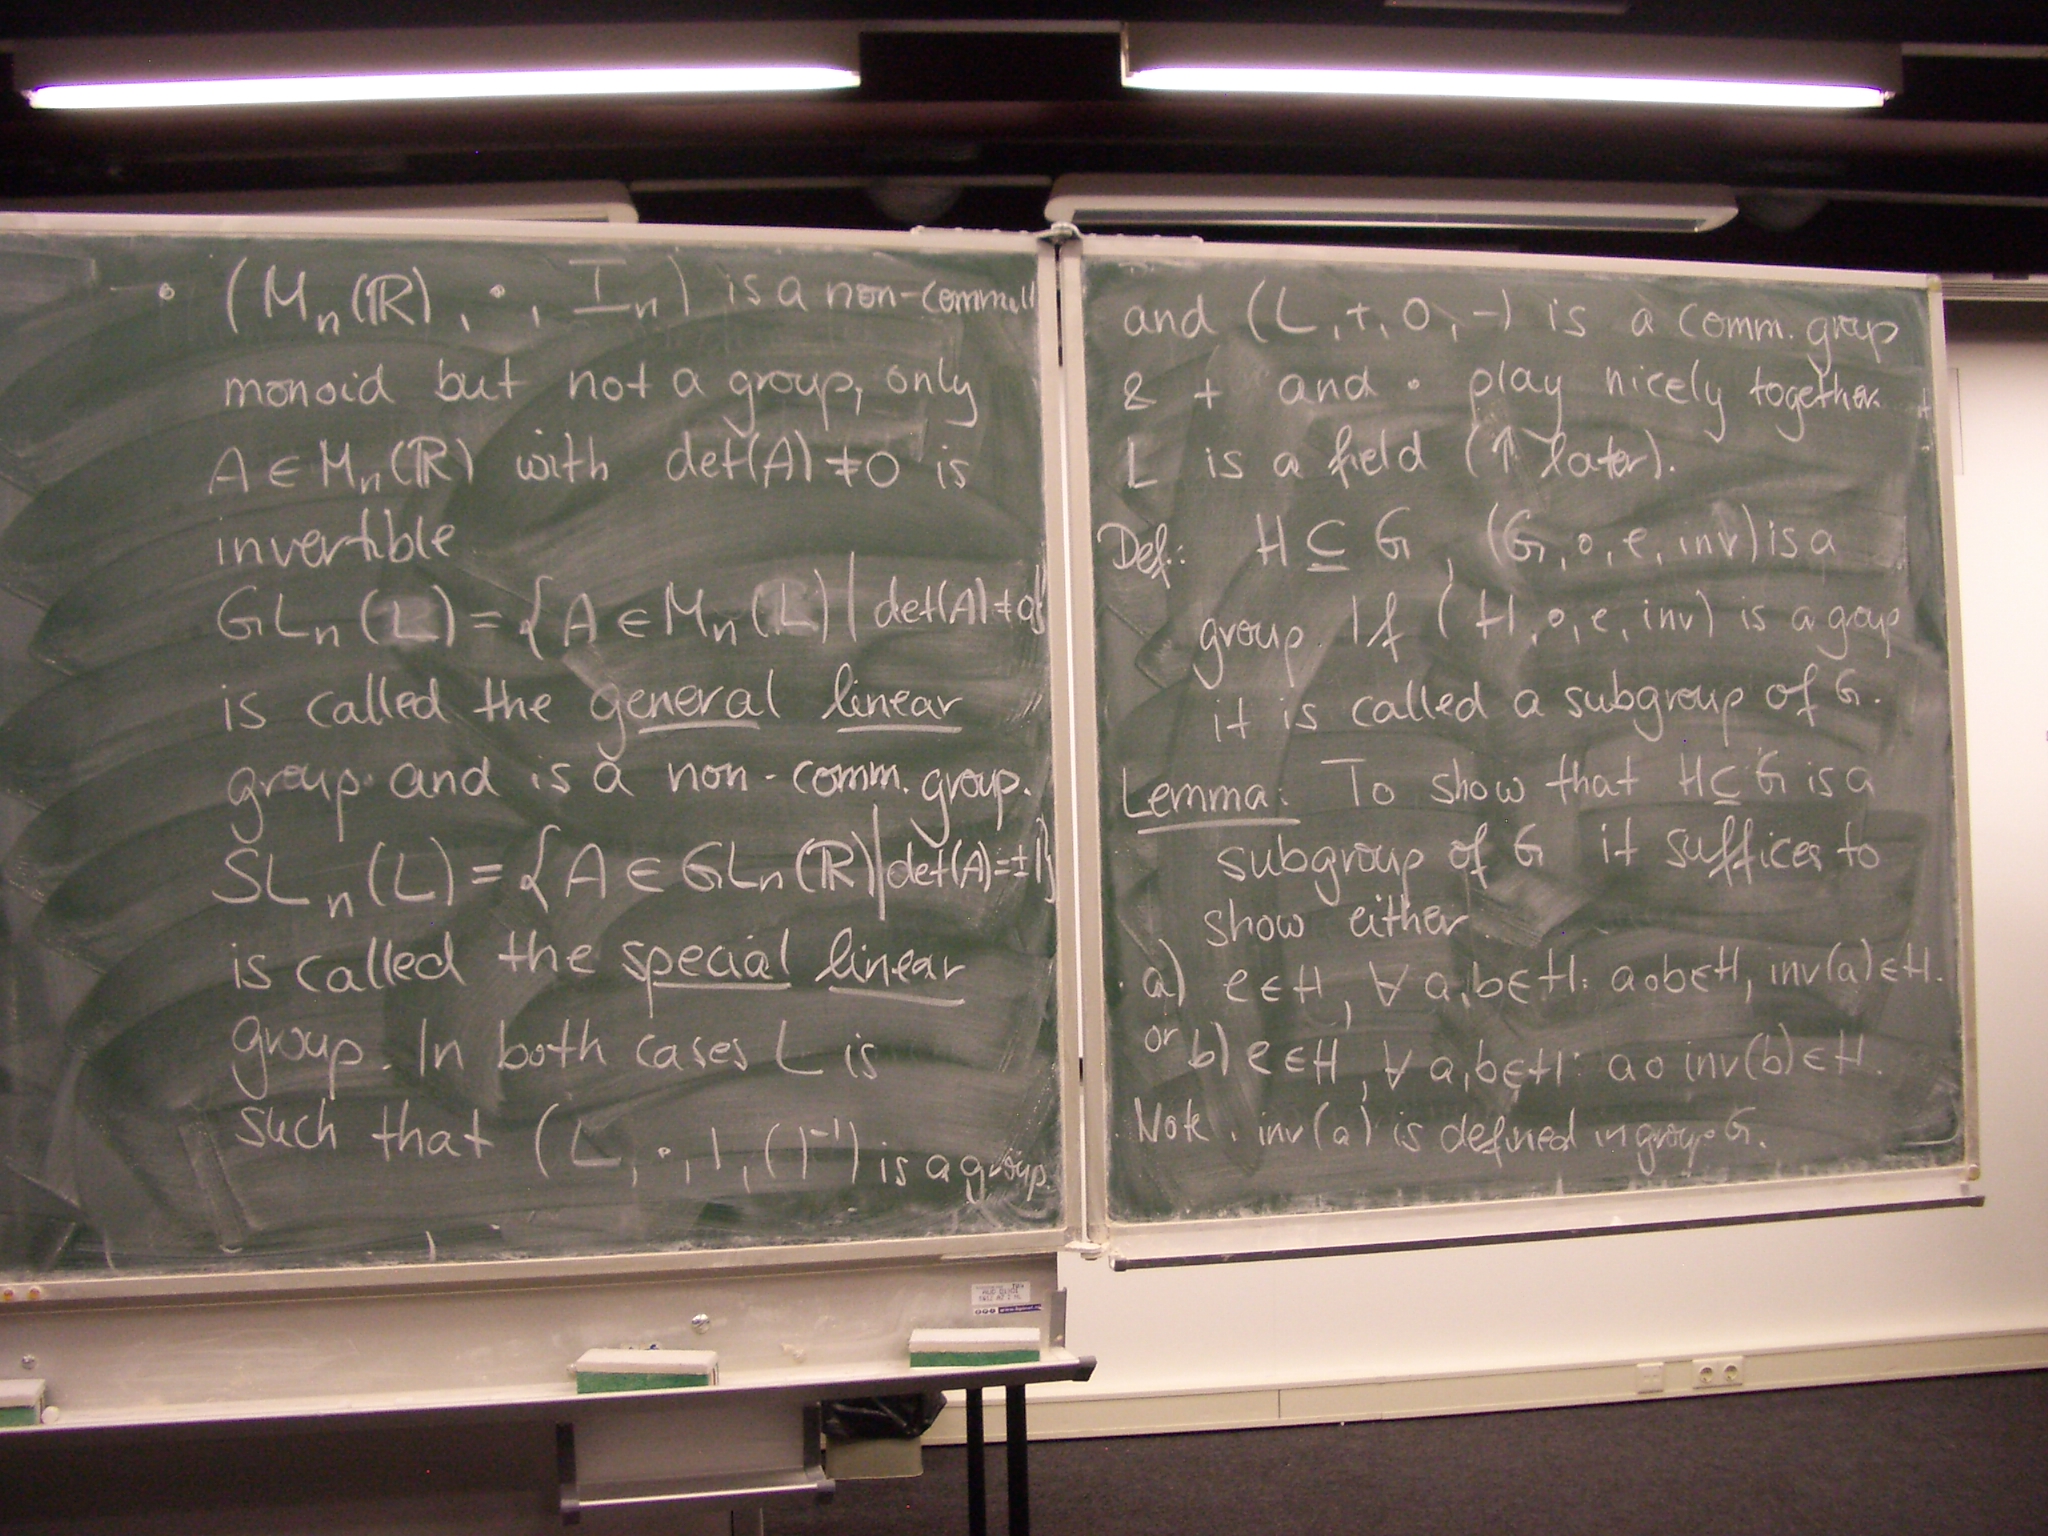 • (Mₙ(ℝ), ∘, Iₙ) is a non-comm.
monoid but not a group, only
A ∈ Mₙ(ℝ) with det(A) ≠ 0 is
invertible
GLₙ(L) = {A ∈ Mₙ(L) | det(A) ≠ 0}
is called the general linear
group and is a non-comm. group.
SLₙ(L) = {A ∈ GLₙ(ℝ) | det(A) = ±1}
is called the special linear
group. In both cases L is
such that (L, ·, 1, ( )⁻¹) is a group
and (L, +, 0, -) is a comm. group
& + and · play nicely together.
L is a field (↑ later).
Def.: H ⊆ G, (G, ∘, e, inv) is a
group. If (H, ∘, e, inv) is a group
it is called a subgroup of G.
Lemma: To show that H ⊆ G is a
subgroup of G it suffices to
show either
a) e ∈ H, ∀ a,b ∈ H: a∘b ∈ H, inv(a) ∈ H.
or b) e ∈ H, ∀ a,b ∈ H: a∘inv(b) ∈ H.
Note. inv(a) is defined in group G.